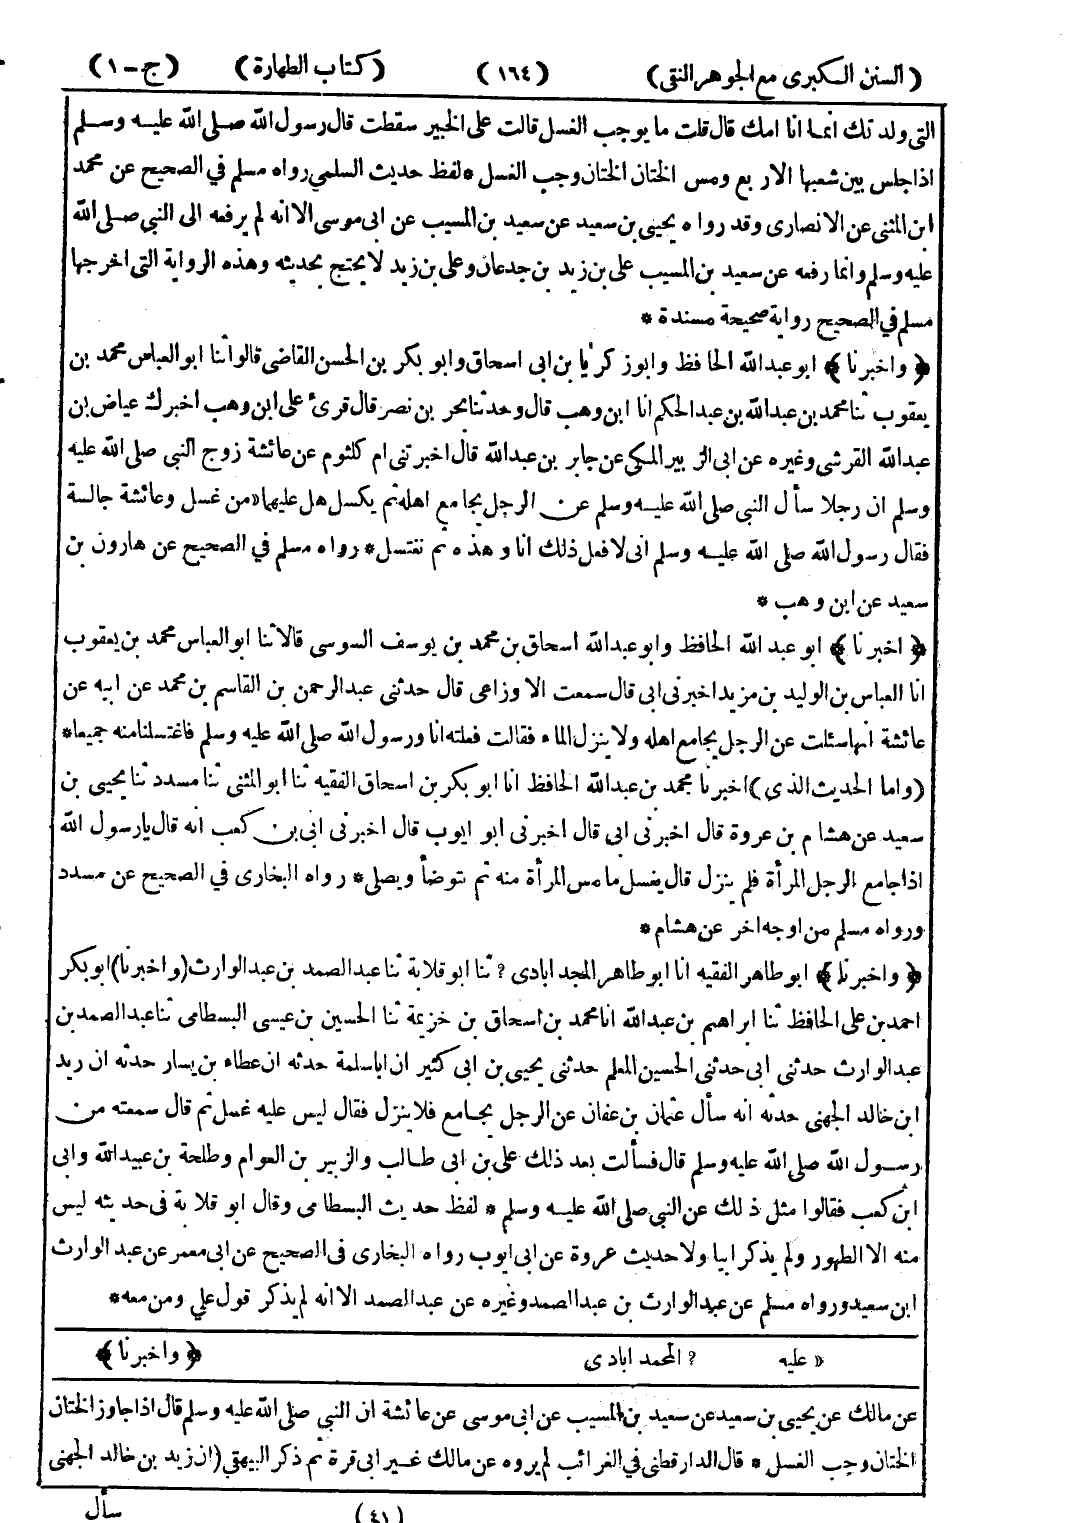 (السنن الكبرى مع الجوهر النقى) (١٦٤) (كتاب الطهارة) (ج-١)
التى ولدتك انما انا امك قال قلت ما يوجب الغسل قالت على الخبير سقطت قال رسول الله صلى الله عليه وسلم
اذا جلس بين شعبها الاربع ومس الختان الختان وجب الغسل * لفظ حديث السلمي رواه مسلم في الصحيح عن محمد
ابن المثنى عن الانصارى وقد رواه يحيى بن سعيد عن سعيد بن المسيب عن ابى موسى الا انه لم يرفعه الى النبي صلى الله
عليه وسلم وانما رفعه عن سعيد بن المسيب على بن زيد بن جدعان وعلى بن زيد لا يحتج بحديثه وهذه الرواية التى اخرجها
مسلم في الصحيح رواية صحيحة مسندة *
﴿ واخبرنا ﴾ ابو عبد الله الحافظ وابو زكريا بن ابى اسحاق وابو بكر بن الحسن القاضى قالوا ثنا ابو العباس محمد بن
يعقوب ثنا محمد بن عبد الله بن عبد الحكم انا ابن وهب قال وحدثنا بحر بن نصر قال قرئ على ابن وهب اخبرك عياض بن
عبد الله القرشى وغيره عن ابى الزبير المكى عن جابر بن عبد الله قال اخبرتنى ام كلثوم عن عائشة زوج النبي صلى الله عليه
وسلم ان رجلا سأل النبى صلى الله عليه وسلم عن الرجل يجامع اهله ثم يكسل هل عليها« من غسل وعائشة جالسة
فقال رسول الله صلى الله عليه وسلم انى لافعل ذلك انا وهذه ثم نغتسل * رواه مسلم في الصحيح عن هارون بن
سعيد عن ابن وهب *
﴿ اخبرنا ﴾ ابو عبد الله الحافظ وابو عبد الله اسحاق بن محمد بن يوسف السوسى قالا ثنا ابو العباس محمد بن يعقوب
انا العباس بن الوليد بن مزيد اخبرنى ابى قال سمعت الاوزاعى قال حدثنى عبد الرحمن بن القاسم بن محمد عن ابيه عن
عائشة انها سئلت عن الرجل يجامع اهله ولا ينزل الماء فقالت فعلته انا ورسول الله صلى الله عليه وسلم فاغتسلنا منه جميعا *
(واما الحديث الذي) اخبرنا محمد بن عبد الله الحافظ انا ابو بكر بن اسحاق الفقيه ثنا ابو المثنى ثنا مسدد ثنا يحيى بن
سعيد عن هشام بن عروة قال اخبرنى ابى قال اخبرنى ابو ايوب قال اخبرنى ابى بن كعب انه قال يا رسول الله
اذا جامع الرجل المرأة فلم ينزل قال يغسل ما مس المرأة منه ثم يتوضأ ويصلى * رواه البخارى في الصحيح عن مسدد
ورواه مسلم من اوجه اخر عن هشام *
﴿ واخبرنا ﴾ ابو طاهر الفقيه انا ابو طاهر المجد ابادى ? ثنا ابو قلابة ثنا عبد الصمد بن عبد الوارث (واخبرنا) ابو بكر
احمد بن على الحافظ ثنا ابراهيم بن عبد الله انا محمد بن اسحاق بن خزيمة ثنا الحسين بن عيسى البسطامى ثنا عبد الصمد بن
عبد الوارث حدثنى ابى حدثنى الحسين المعلم حدثنى يحيى بن ابى كثير ان اباسلمة حدثه ان عطاء بن يسار حدثه ان زيد
ابن خالد الجهنى حدثه انه سأل عثمان بن عفان عن الرجل يجامع فلا ينزل فقال ليس عليه غسل ثم قال سمعته من
رسول الله صلى الله عليه وسلم قال فسألت بعد ذلك على بن ابى طالب والزبير بن العوام وطلحة بن عبيد الله وابى
ابن كعب فقالوا مثل ذلك عن النبي صلى الله عليه وسلم * لفظ حديث البسطامى وقال ابو قلابة فى حديثه ليس
منه الا الطهور ولم يذكر ابيا ولا حديث عروة عن ابى ايوب رواه البخارى فى الصحيح عن ابى معمر عن عبد الوارث
ابن سعيد ورواه مسلم عن عبد الوارث بن عبد الصمد وغيره عن عبد الصمد الا انه لم يذكر قول علي ومن معه *
« عليه ? المحمد ابادى ﴿ واخبرنا ﴾
عن مالك عن يحيى بن سعيد عن سعيد بن المسيب عن ابى موسى عن عائشة ان النبي صلى الله عليه وسلم قال اذا جاوز الختان
الختان وجب الغسل * قال الدارقطنى في الغرائب لم يروه عن مالك غير ابى قرة ثم ذكر البيهقي (ان زيد بن خالد الجهنى
(٤١) سأل